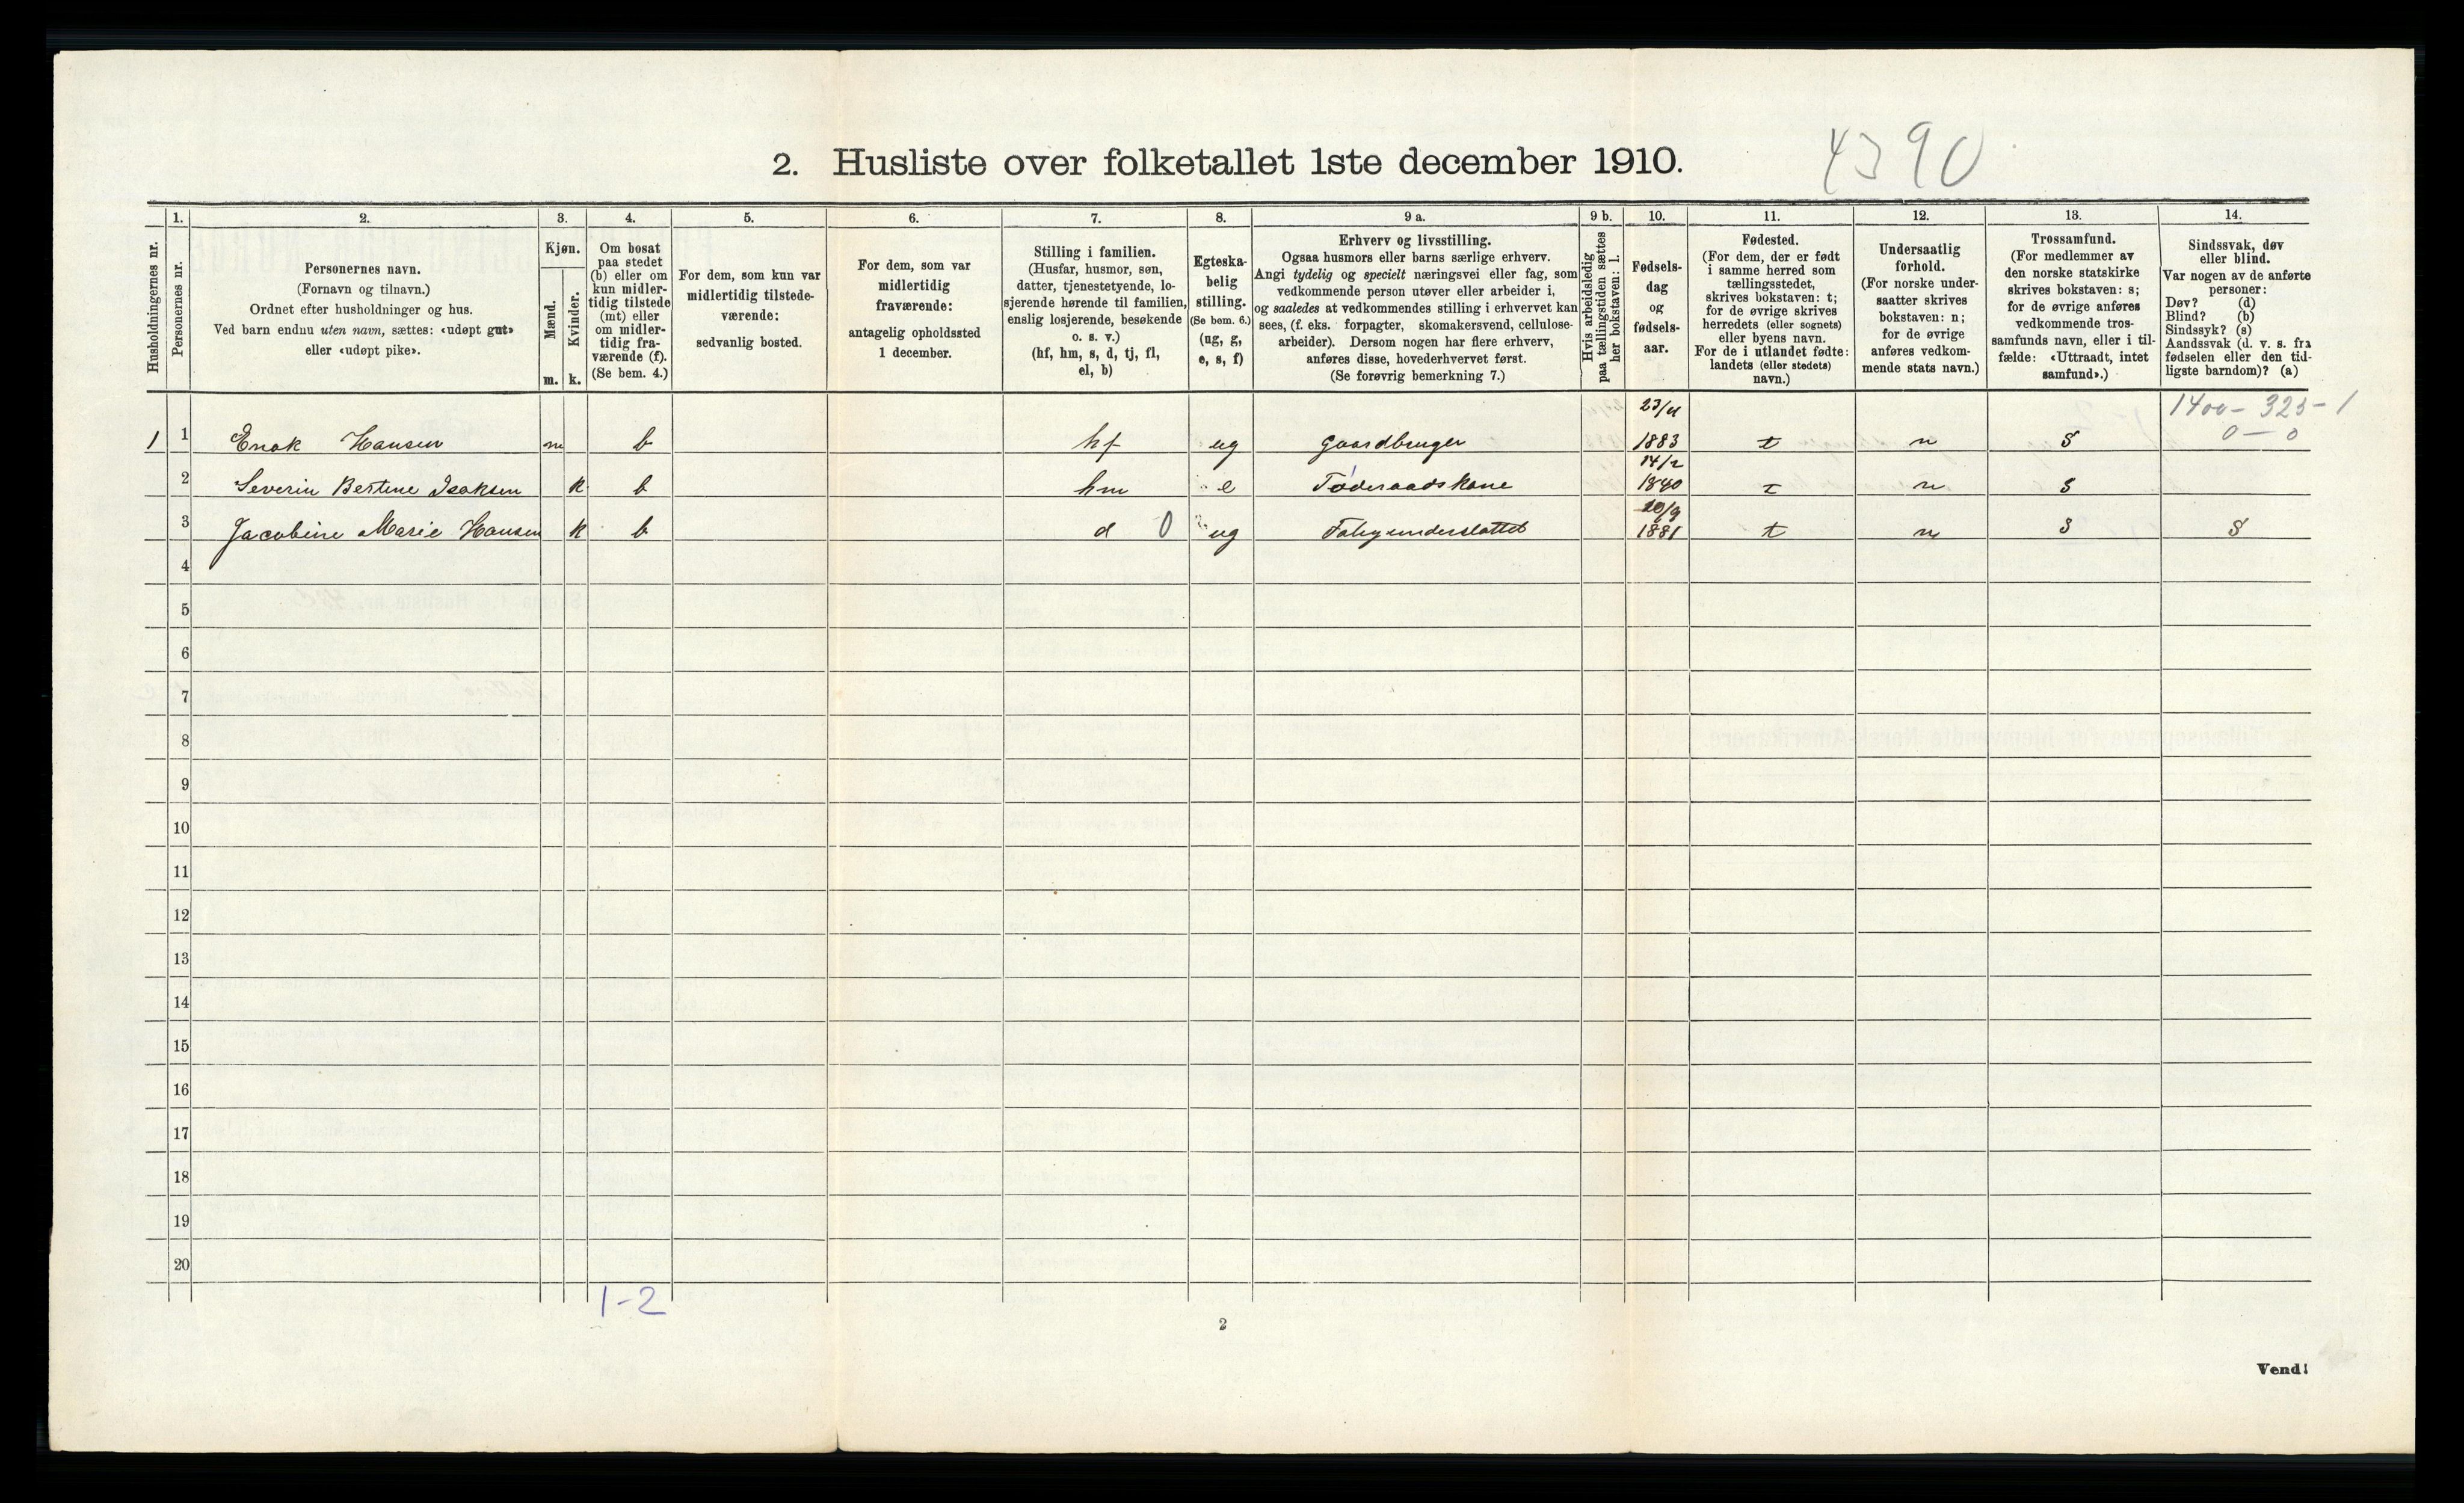 2. Husliste over folketallet 1ste december 1910.
4390
Husholdningernes nr.
1.
Personernes nr.
2.
Personernes navn.
(Fornavn og tilnavn.)
Ordnet efter husholdninger og hus.
Ved barn endnu uten navn, sættes: «udøpt gut»
eller «udøpt pike».
3.
Kjøn.
Mænd.
Kvinder.
m. k.
4.
Om bosat
paa stedet
(b) eller om
kun midler-
tidig tilstede
(mt) eller
om midler-
tidig fra-
værende (f).
(Se bem. 4.)
5.
For dem, som kun var
midlertidig tilstede-
værende:
sedvanlig bosted.
6.
For dem, som var
midlertidig
fraværende:
antagelig opholdssted
1 december.
7.
Stilling i familien.
(Husfar, husmor, søn,
datter, tjenestetyende, lo-
sjerende hørende til familien,
enslig losjerende, besøkende
o. s. v.)
(hf, hm, s, d, tj, fl,
el, b)
8.
Egteska-
belig
stilling.
(Se bem. 6.)
(ug, g,
e, s, f)
9 a.
Erhverv og livsstilling.
Ogsaa husmors eller barns særlige erhverv.
Angi tydelig og specielt næringsvei eller fag, som
vedkommende person utøver eller arbeider i,
og saaledes at vedkommendes stilling i erhvervet kan
sees, (f. eks. forpagter, skomakersvend, cellulose-
arbeider). Dersom nogen har flere erhverv,
anføres disse, hovederhvervet først.
(Se forøvrig bemerkning 7.)
9 b.
Hvis arbeidsledig
paa tællingstiden sættes
her bokstaven: l.
10.
Fødsels-
dag
og
fødsels-
aar.
11.
Fødested.
(For dem, der er født
i samme herred som
tællingsstedet,
skrives bokstaven: t;
for de øvrige skrives
herredets (eller sognets)
eller byens navn.
For de i utlandet fødte:
landets (eller stedets)
navn.)
12.
Undersaatlig
forhold.
(For norske under-
saatter skrives
bokstaven: n;
for de øvrige
anføres vedkom-
mende stats navn.)
13.
Trossamfund.
(For medlemmer av
den norske statskirke
skrives bokstaven: s;
for de øvrige anføres
vedkommende tros-
samfunds navn, eller i til-
fælde: «Uttraadt, intet
samfund».)
14.
Sindssvak, døv
eller blind.
Var nogen av de anførte
personer:
Døv? (d)
Blind? (b)
Sindssyk? (s)
Aandssvak (d. v. s. fra
fødselen eller den tid-
ligste barndom)? (a)
1400 - 325 - 1
0 - 0
1 1 Enok Hansen m b hf ug Gaardbruger 1883 t n S
2 Severin Bertine Isaksen k b hm e Føderaadskone 14/2 1840 t n S
3 Jacobine Marie Hansen k b d 0 ug 20/9 1881 t n S S
4
5
6
7
8
9
10
11
12
13
14
15
16
17
18
19
20
1-2
2
Vend!